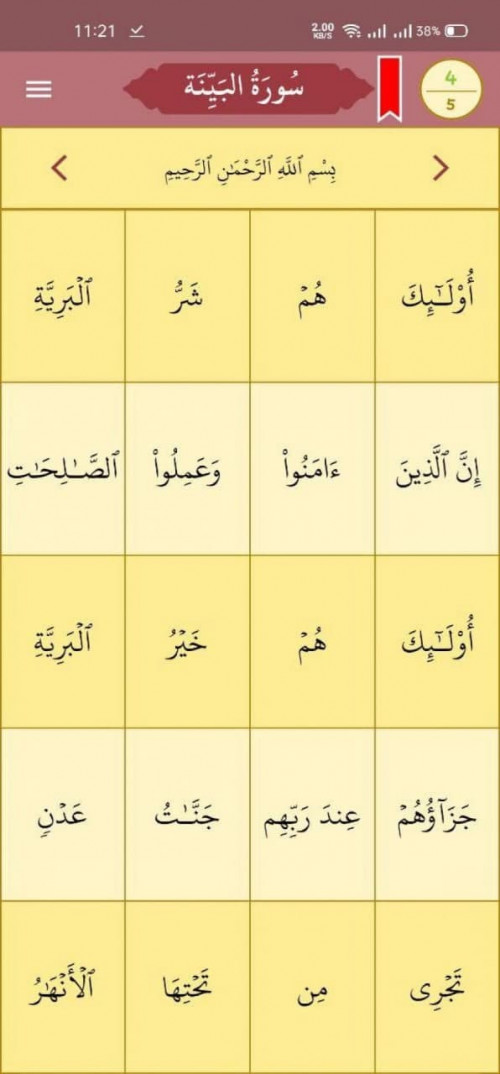 11:21 2.00 KB/S 38%
سُورَةُ البَيِّنَة 4 5
بِسْمِ ٱللَّهِ ٱلرَّحْمَٰنِ ٱلرَّحِيمِ
أُوْلَـٰٓئِكَ هُمْ شَرُّ ٱلْبَرِيَّةِ
إِنَّ ٱلَّذِينَ ءَامَنُوا۟ وَعَمِلُوا۟ ٱلصَّـٰلِحَـٰتِ
أُوْلَـٰٓئِكَ هُمْ خَيْرُ ٱلْبَرِيَّةِ
جَزَآؤُهُمْ عِندَ رَبِّهِم جَنَّـٰتُ عَدْنٍ
تَجْرِى مِن تَحْتِهَا ٱلْأَنْهَـٰرُ